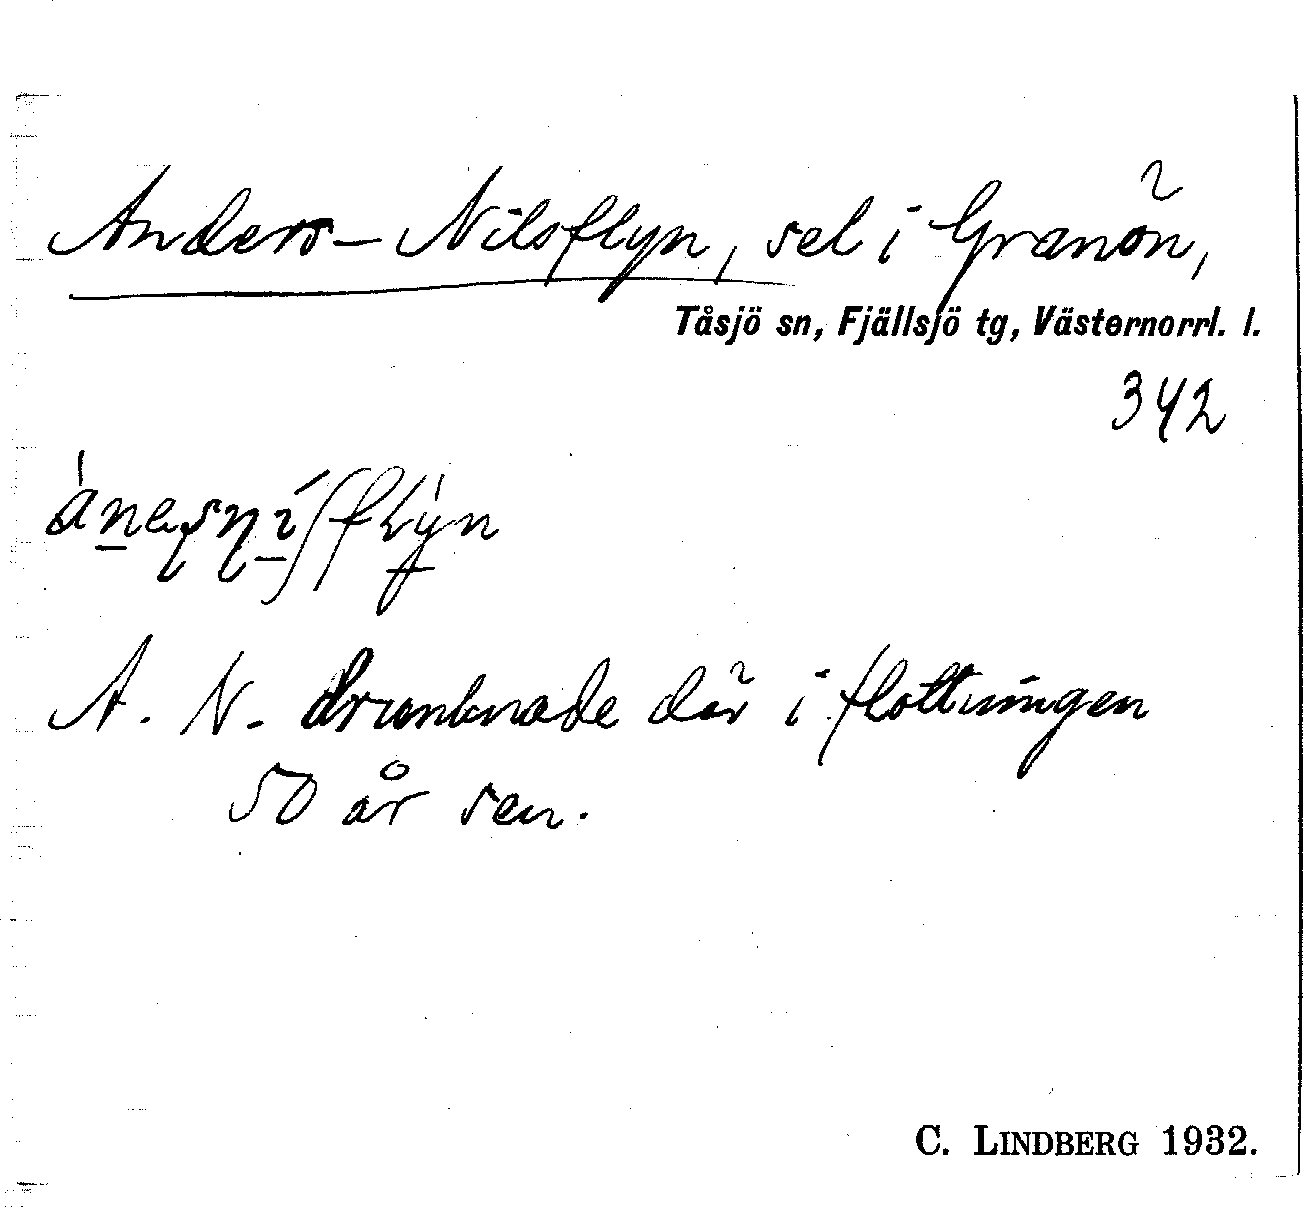 Anders-Nilsflyn, sel i Granön,
Tåsjö sn, Fjällsjö tg, Västernorrl. l.
342
A. N. drunknade där i flottningen
50 år sen.
C. LINDBERG 1932.